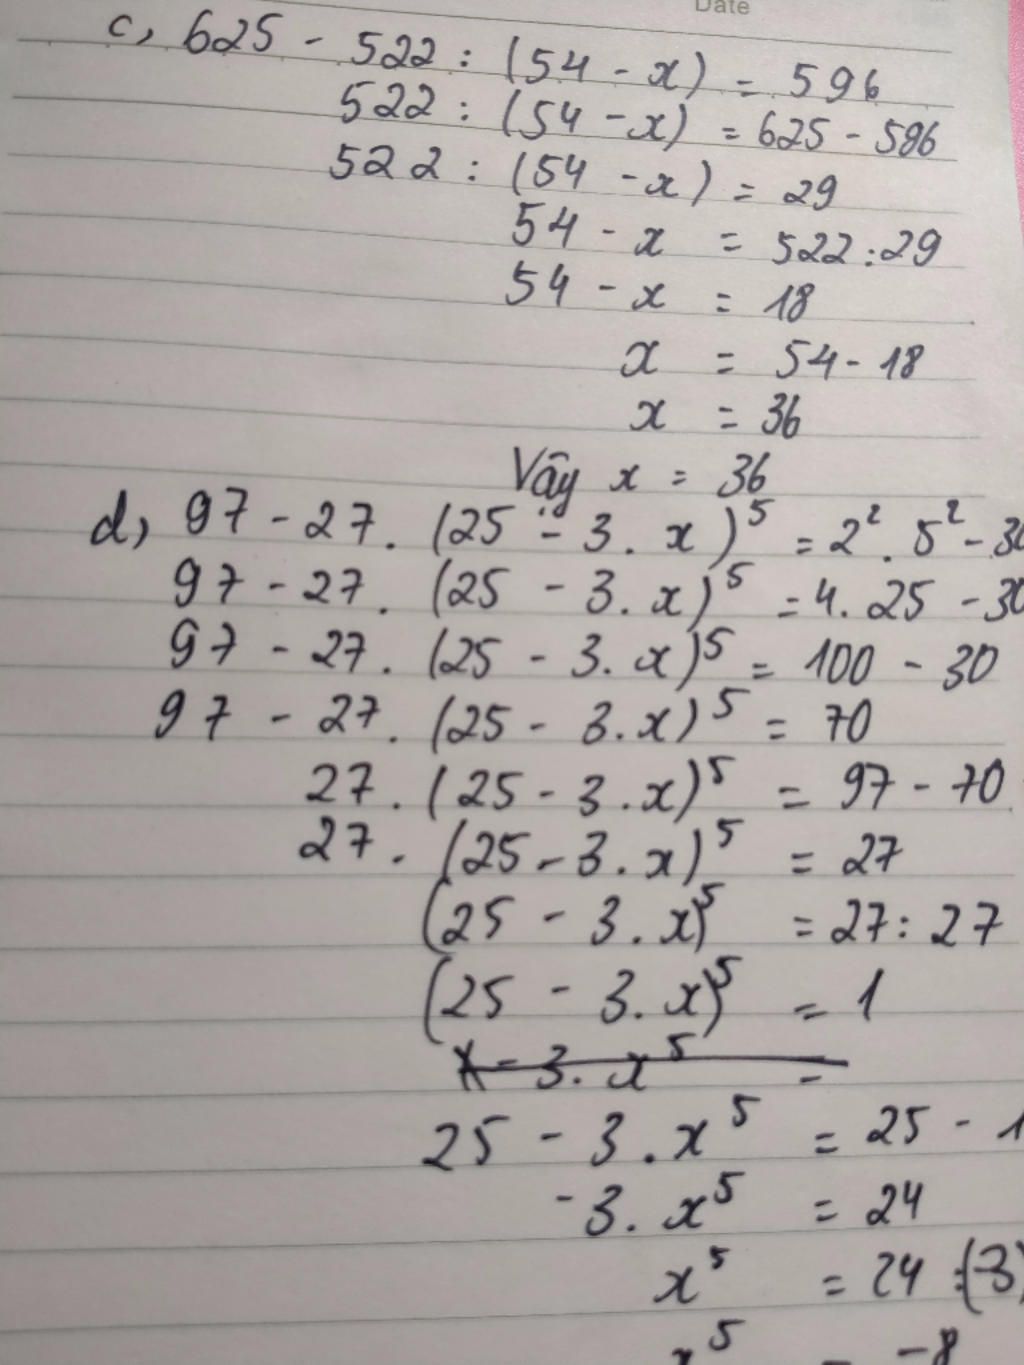 Date
c, 625 - 522 : (54 - x) = 596
522 : (54 - x) = 625 - 596
522 : (54 - x) = 29
54 - x = 522 : 29
54 - x = 18
x = 54 - 18
x = 36
Vậy x = 36
d, 97 - 27 . (25 - 3 . x)⁵ = 2² . 5² - 30
97 - 27 . (25 - 3 . x)⁵ = 4 . 25 - 30
97 - 27 . (25 - 3 . x)⁵ = 100 - 30
97 - 27 . (25 - 3 . x)⁵ = 70
27 . (25 - 3 . x)⁵ = 97 - 70
27 . (25 - 3 . x)⁵ = 27
(25 - 3 . x)⁵ = 27 : 27
(25 - 3 . x)⁵ = 1
- 3 . x⁵ =
25 - 3 . x⁵ = 25 - 1
-3 . x⁵ = 24
x⁵ = 24 : (-3)
x⁵ = -8